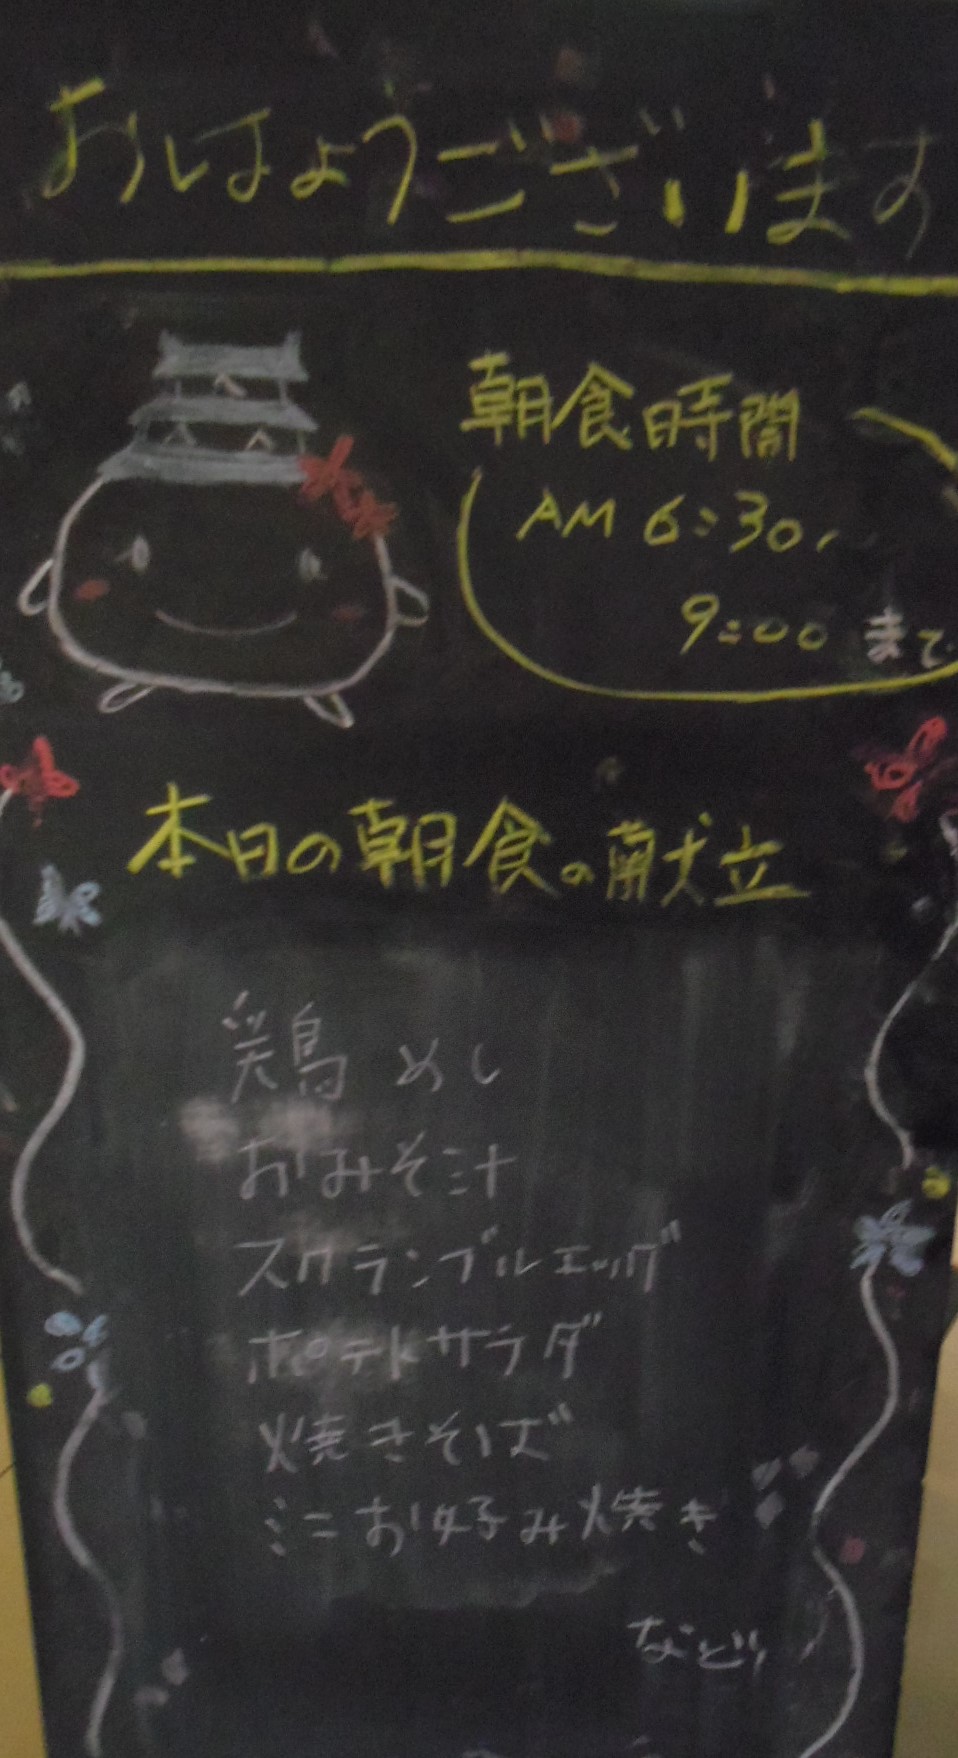 おはようございます
朝食時間
AM 6:30〜
9:00 まで
本日の朝食の献立
鶏めし
おみそ汁
スクランブルエッグ
ポテトサラダ
焼きそば
ミニお好み焼き
など